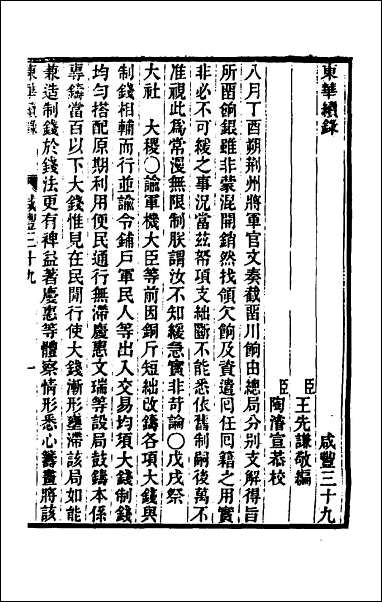 東華續錄
咸豐三十九
臣王先謙敬編
臣陶濬宣恭校
八月丁酉朔荆州將軍官文奏截畱川餉由總局分别支解得旨
所畱餉銀雖非蒙混開銷然找領欠餉及資遣囘任囘籍之用實
非必不可緩之事況當茲帑項支絀斷不能悉依舊制嗣後萬不
准視此爲常漫無限制朕謂汝不知緩急實非苛論〇戊戌祭
大社　大稷〇諭軍機大臣等前因銅斤短絀改鑄各項大錢與
制錢相輔而行並諭令鋪戸軍民人等出入交易均須大錢制錢
均匀搭配原期利用便民通行無滯慶惠文瑞等設局鼓鑄本係
專鑄當百以下大錢惟見在民閒行使大錢漸形壅滯該局如能
兼造制錢於錢法更有裨益著慶惠等體察情形悉心籌畫將該
東華續錄　咸豐三十九　一